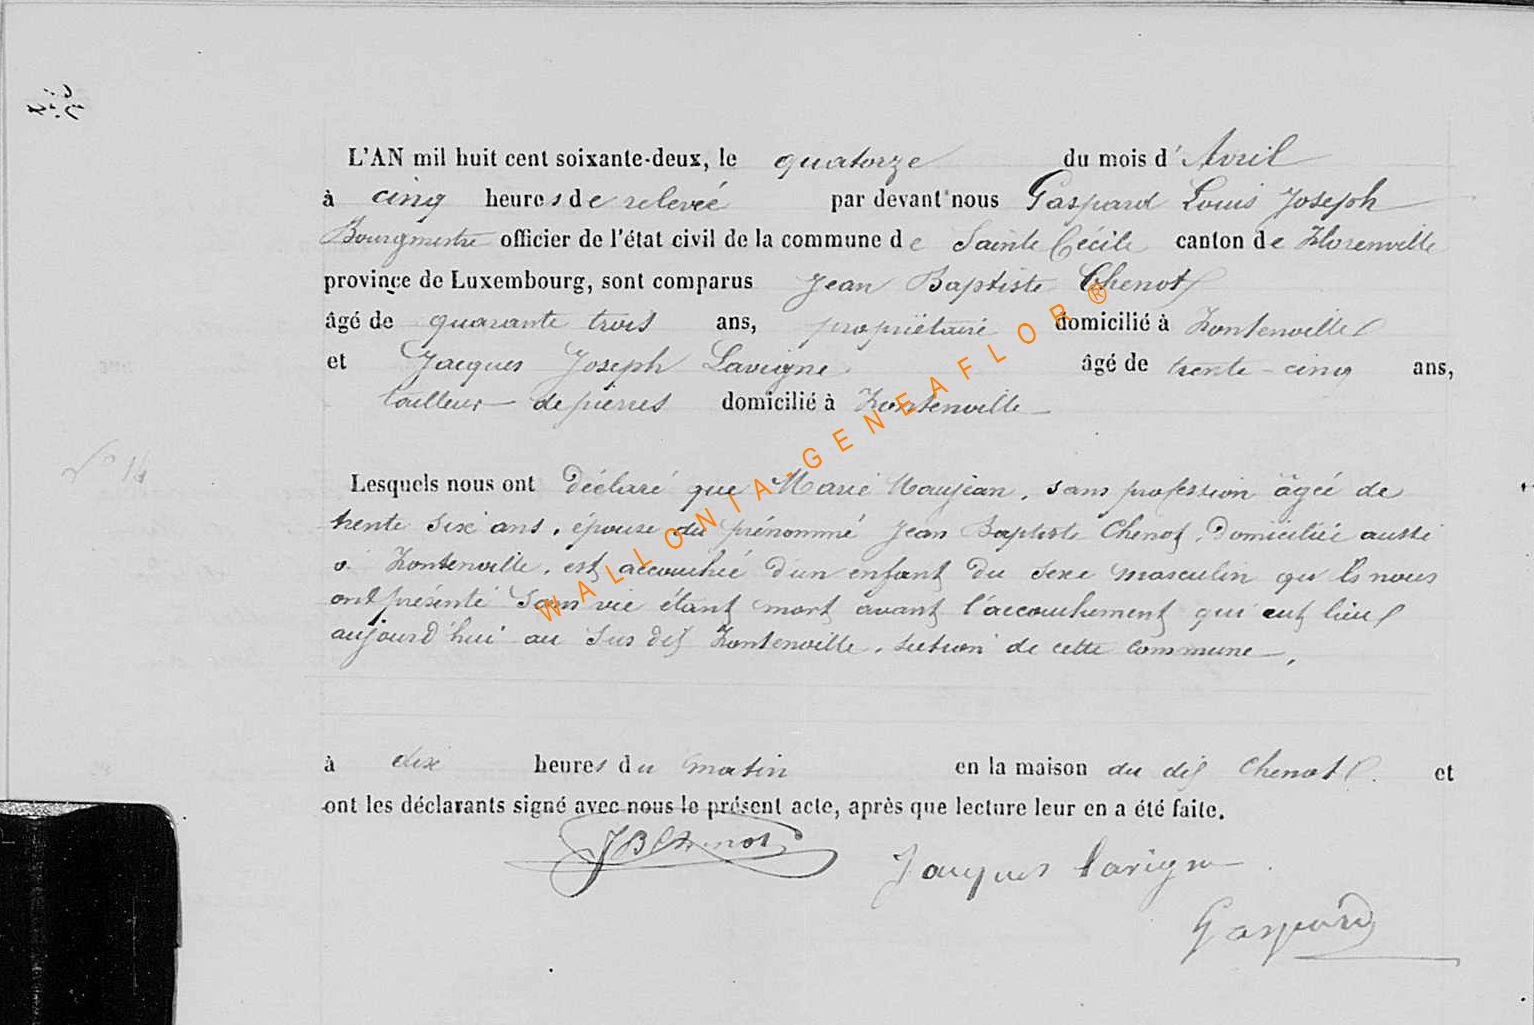 L'AN mil huit cent soixante-deux, le quatorze du mois d' Avril
à cinq heures de relevée par devant nous Gaspard Louis Joseph
Bourgmestre officier de l'état civil de la commune de Sainte Cécile canton de Florenville
province de Luxembourg, sont comparus Jean Baptiste Chenot
âgé de quarante trois ans, propriétaire domicilié à Fontenoille
et Jacques Joseph Lavigne âgé de trente-cinq ans,
tailleur de pierres domicilié à Fontenoille
N° 14
Lesquels nous ont déclaré que Marie Maujean, sans profession âgée de
trente six ans, épouse du prénommé Jean Baptiste Chenot, domiciliée aussi
à Fontenoille, est accouchée d'un enfant du sexe masculin qu'ils nous
ont présenté sans vie étant mort avant l'accouchement qui eut lieu
aujourd'hui au sus dit Fontenoille, section de cette commune.
à dix heures du matin en la maison du dit Chenot. et
ont les déclarants signé avec nous le présent acte, après que lecture leur en a été faite.
JB Chenot
Jacques Lavigne
Gaspard
WALLONIA-GENEAFLOR ®